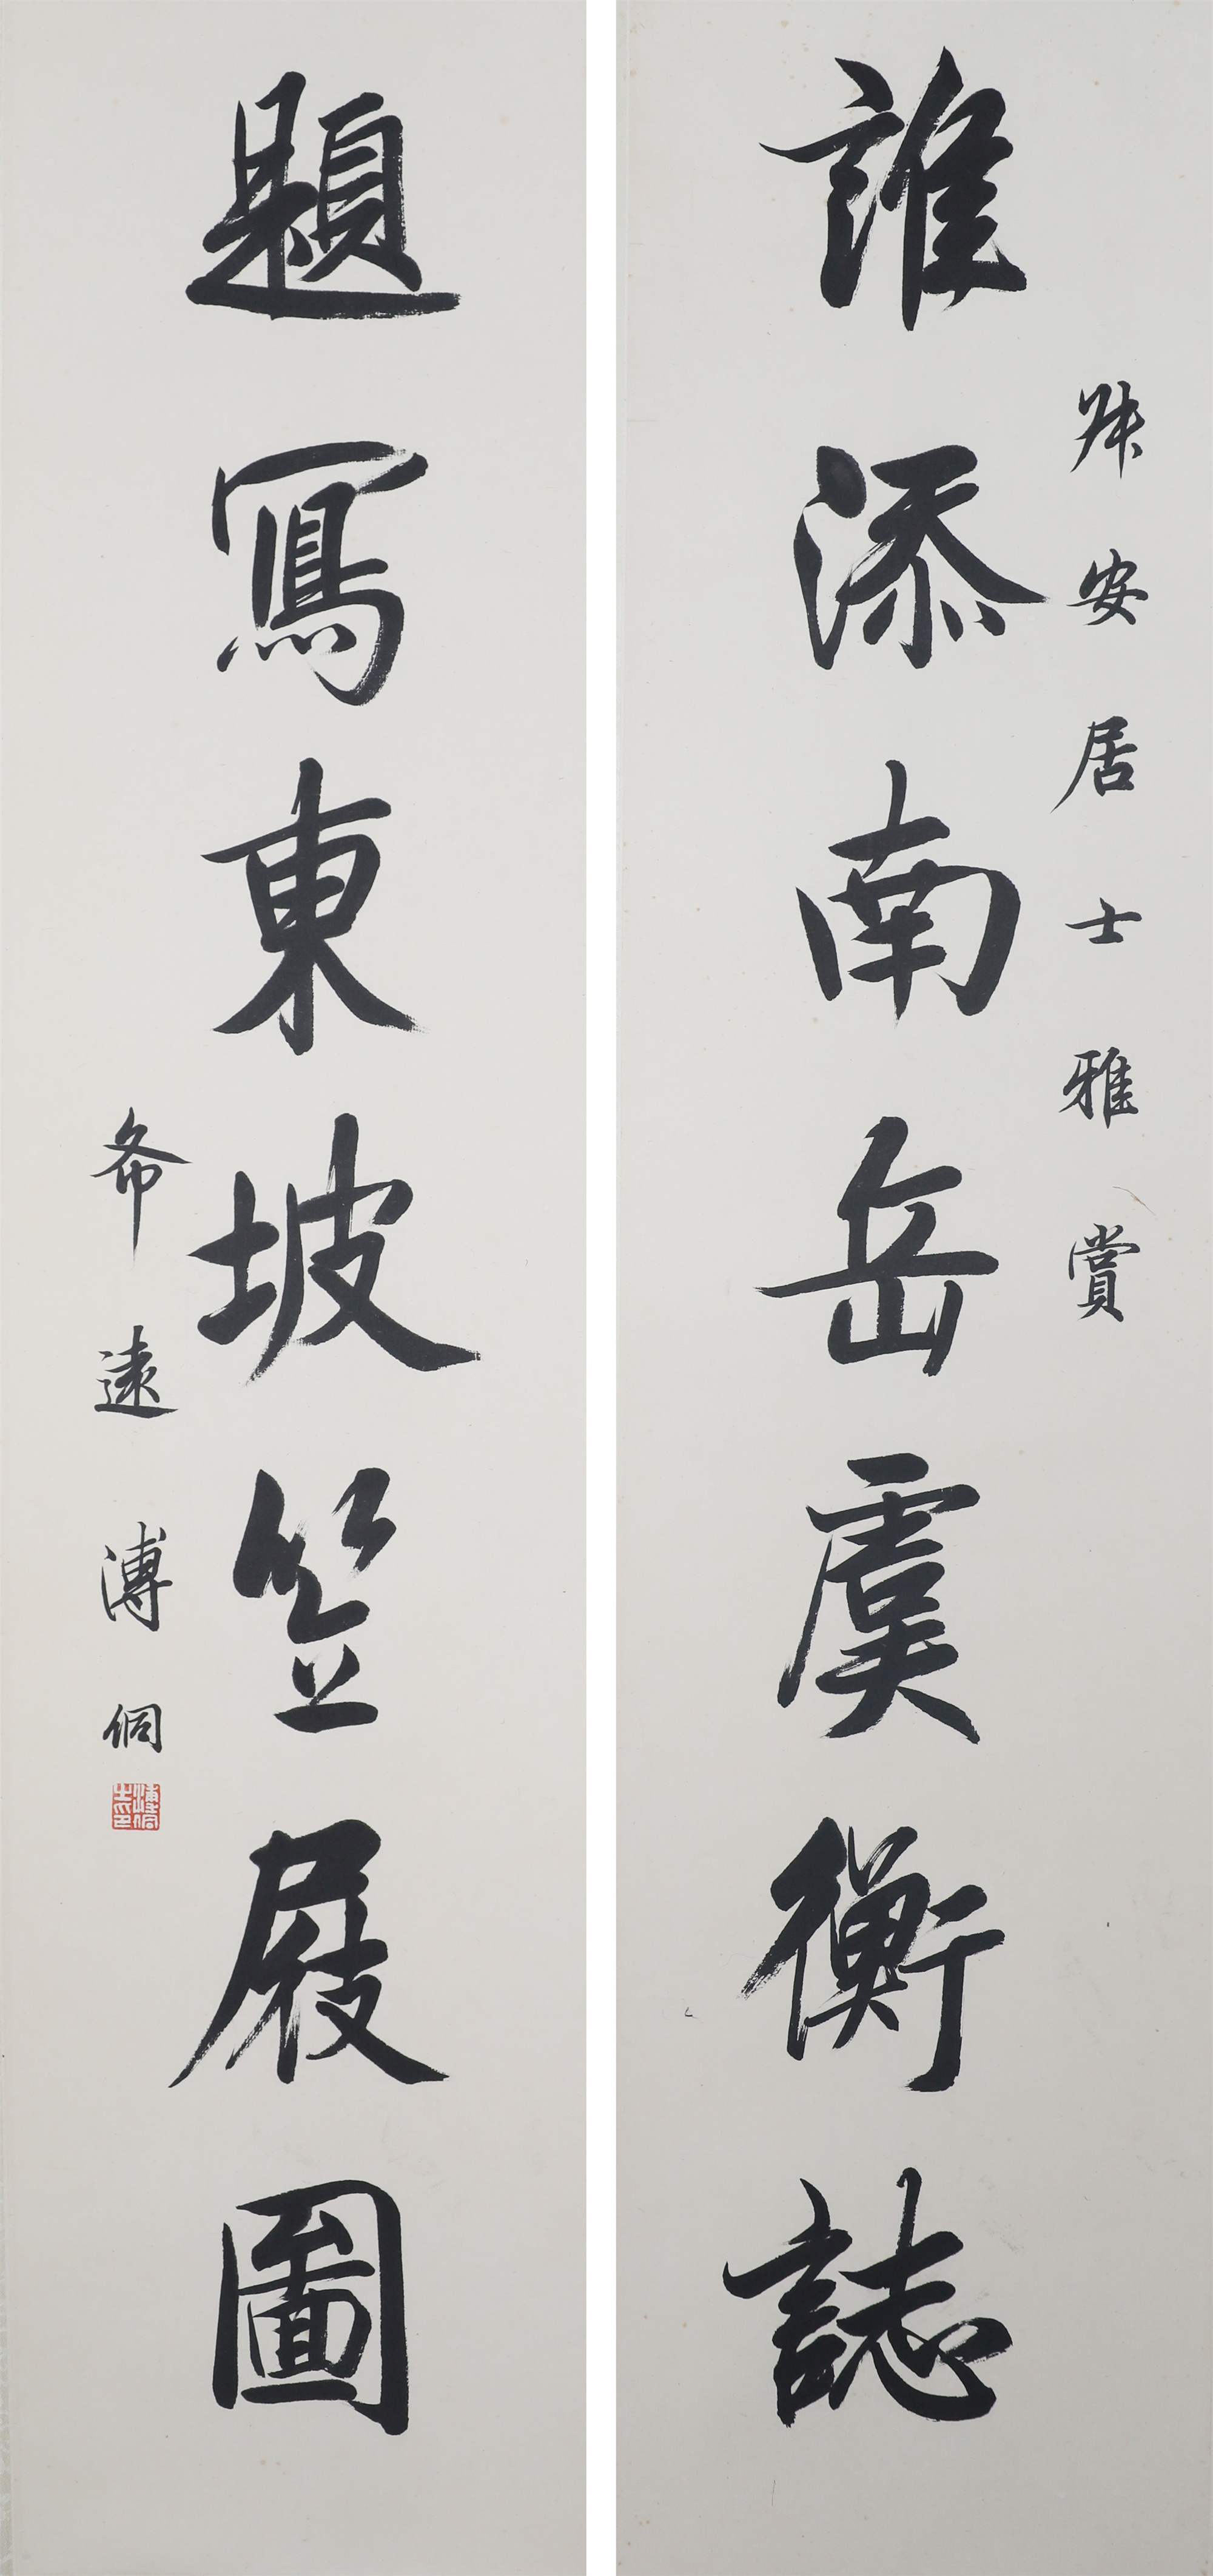 安居士雅賞
誰添南岳虞衡誌
題寫東坡笠屐圖
希遠溥侗
溥侗之印